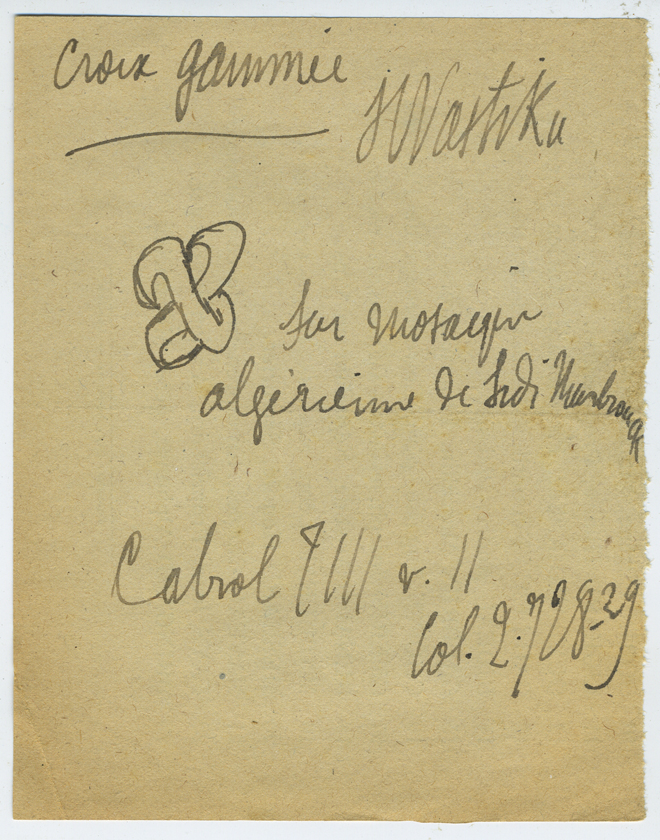 Croix gammée
SWastika
sur mosaique
algérienne de Sidi Mabrouck
Cabrol T III v. II
Col. 2.728-29